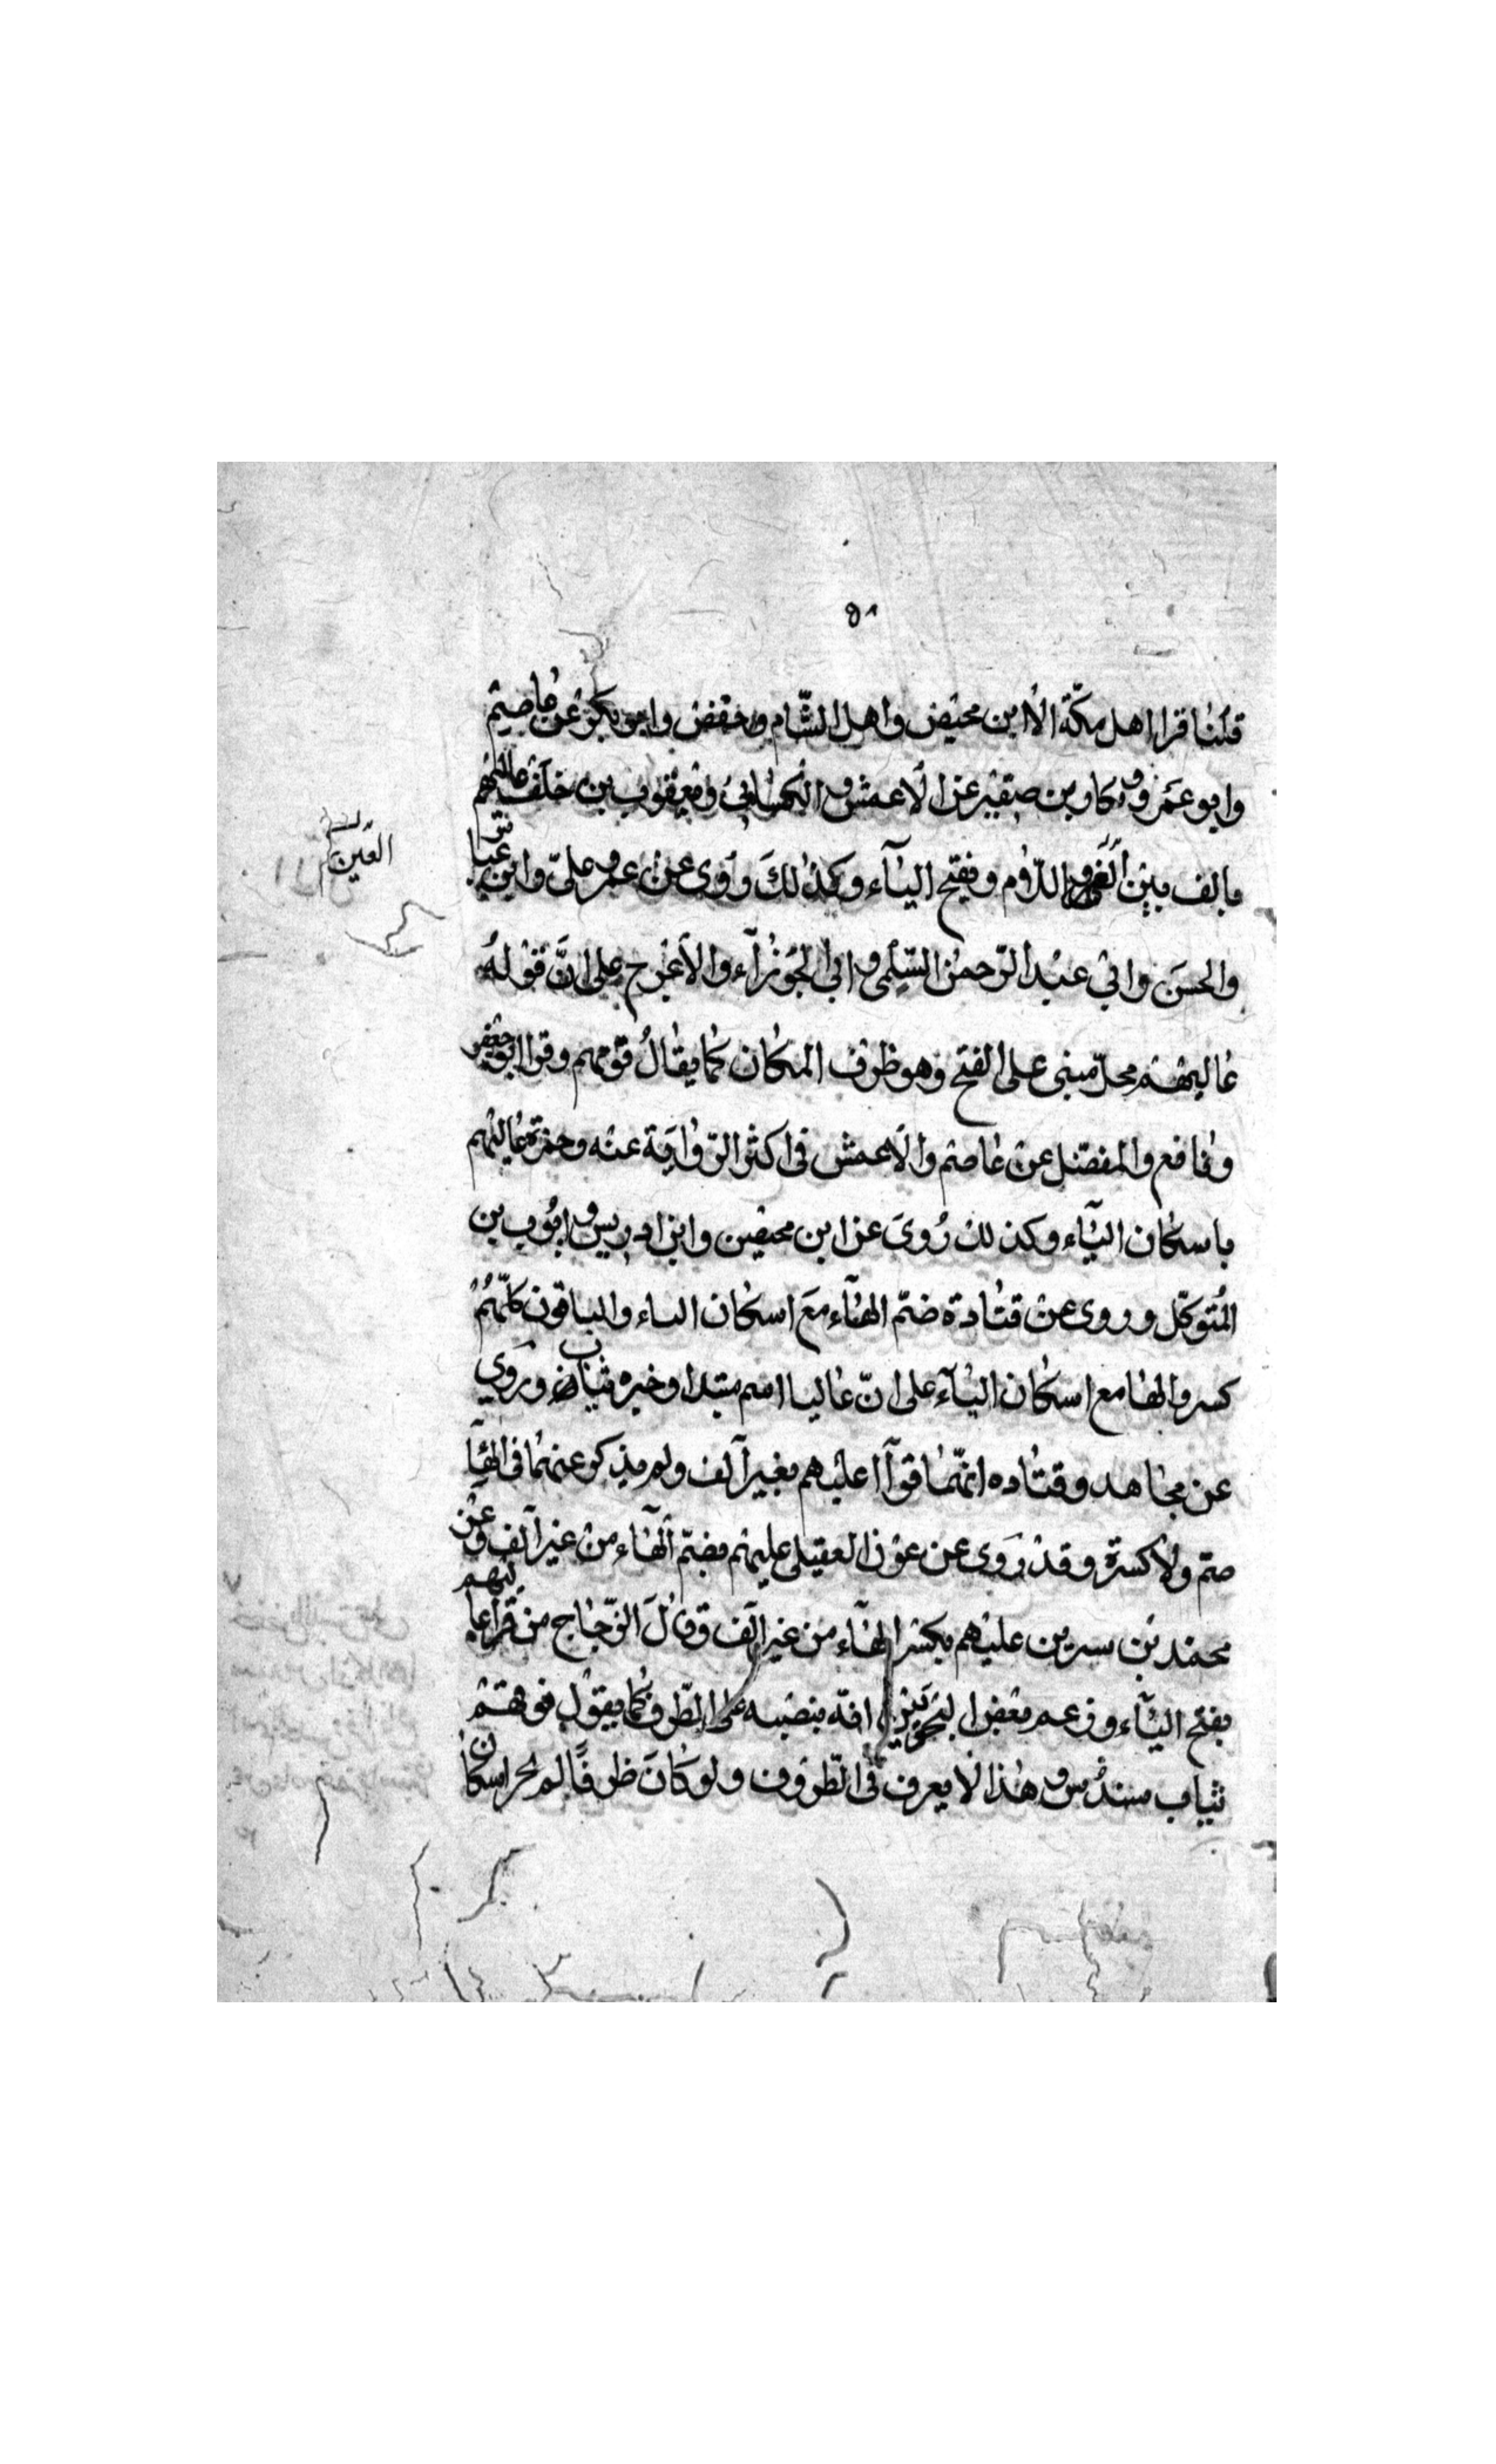 ٥٨
قلنا قرا اهل مكّة الا ابن محيض واهل الشّام وحفض وابو بكر عن عاصِم
وابو عَمرو وبكار بن صقير عن الاعمش والكسائي ويعقوب بن خلف عاليَهُم
بالف بين العين واللّام وفتح اليآء وكذلك رَوى عن عمر وعلىّ وابن عبّاس
العَين
والحسَن وابي عبد الرّحمن السّلمى وابى الجَوزآء والاَعرج على انَّ قوله
عاليهم محلّ مبنى على الفتح وهو ظرف المكان كما يقالُ فوقهم وقرا ابو جعفر
ونافع والمفضّل عن عاصم والاعمش فى اكثر الرّوايَة عنه وحمزة عاليهم
باسكان اليآء وكذلك رُوىَ عن ابن محيضن وابن ادريس وايّوب بن
المُتوكّل وروى عن قتادة ضمّ الهآء معَ اسكان الىاء والباقون كلّهم
كسروا الها مع اسكان اليآء على انّ عاليا اسم مبتدا وخبره ثياب ورَوي
عن مجاهد وقتاده انّهما قرآا عليهم بغير آلف ولم يذكر عنهما فى الهآ
ضم ولا كسرة وقد رَوى عن عون العقيلى عليهم بضمّ الهآء من غير آلف وعن
محمّد بن سيرين عليهم بكسر الهآء من غير آلف وقالَ الزّجاج من قرا عاليهم
بفتح اليآء وزعم بعض النحويّين انّه ينصبه على الظّرف كما يقول فوقهم
ثياب سندُس وهذا لا يعرف فى الظّروف ولو كانَ ظرفًا لم يجز اسكان